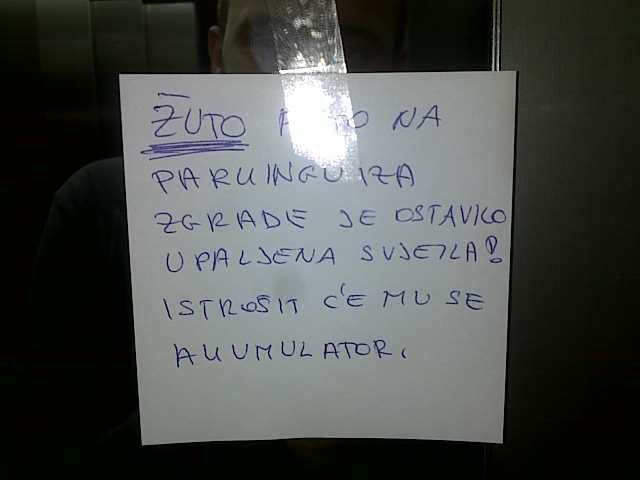 ŽUTO AUTO NA
PARKINGU IZA
ZGRADE JE OSTAVILO
UPALJENA SVJETLA!
ISTROŠIT ĆE MU SE
AKUMULATOR.